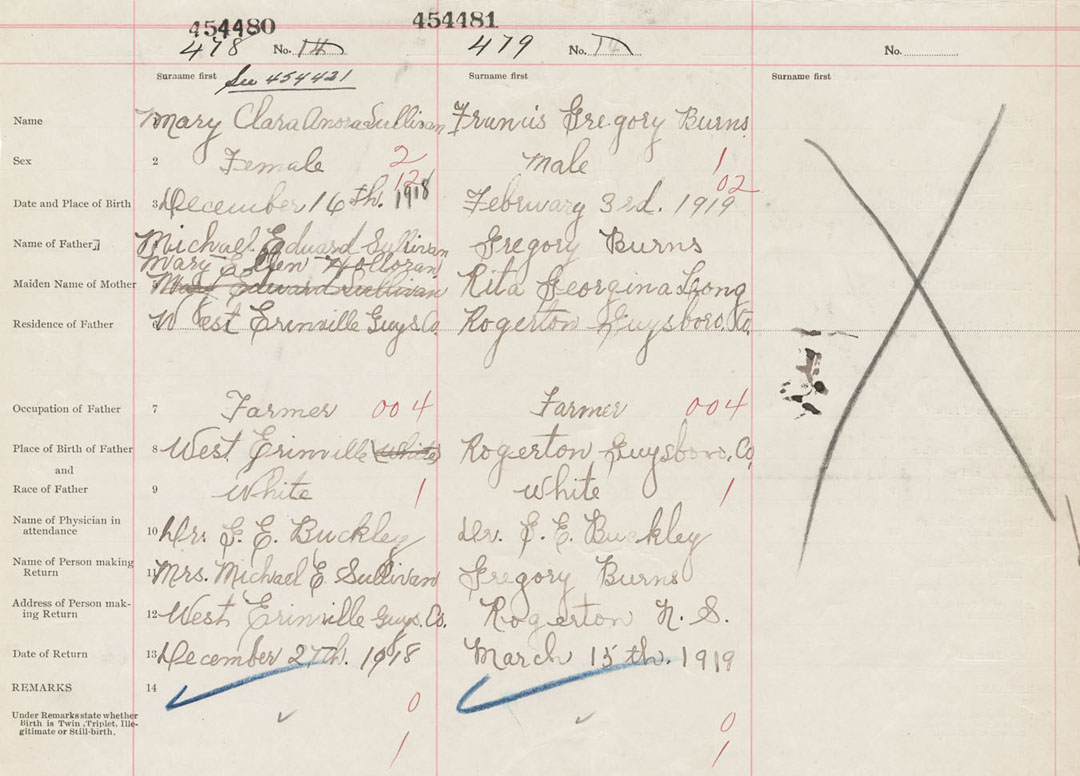 454480 454481
478 No. 14 479 No. 14 No.
Surname first See 454421 Surname first Surname first
Name 1 Mary Clara Anora Sullivan Francis Gregory Burns
Sex 2 Female 2 Male 1
12 02
Date and Place of Birth 3 December 16th. 1918 February 3rd. 1919
Name of Father Michael Edward Sullivan Gregory Burns
Mary Ellen Holloran
Maiden Name of Mother Mary Edward Sullivan Rita Georgina Long
Residence of Father West Erinville Guys. Co. Rogerton Guysboro. Co.
Occupation of Father 7 Farmer 004 Farmer 004
Place of Birth of Father 8 West Erinville (White) Rogerton Guysboro. Co.
and
Race of Father 9 White 1 White 1
Name of Physician in
attendance 10 Dr. G. E. Buckley Dr. G. E. Buckley
Name of Person making
Return 11 Mrs. Michael E. Sullivan Gregory Burns
Address of Person mak-
ing Return 12 West Erinville Guys. Co. Rogerton N. S.
Date of Return 13 December 27th. 1918 March 15th. 1919
REMARKS 14
0 0
Under Remarks state whether
Birth is Twin, Triplet, Ille-
gitimate or Still-birth.
1 1